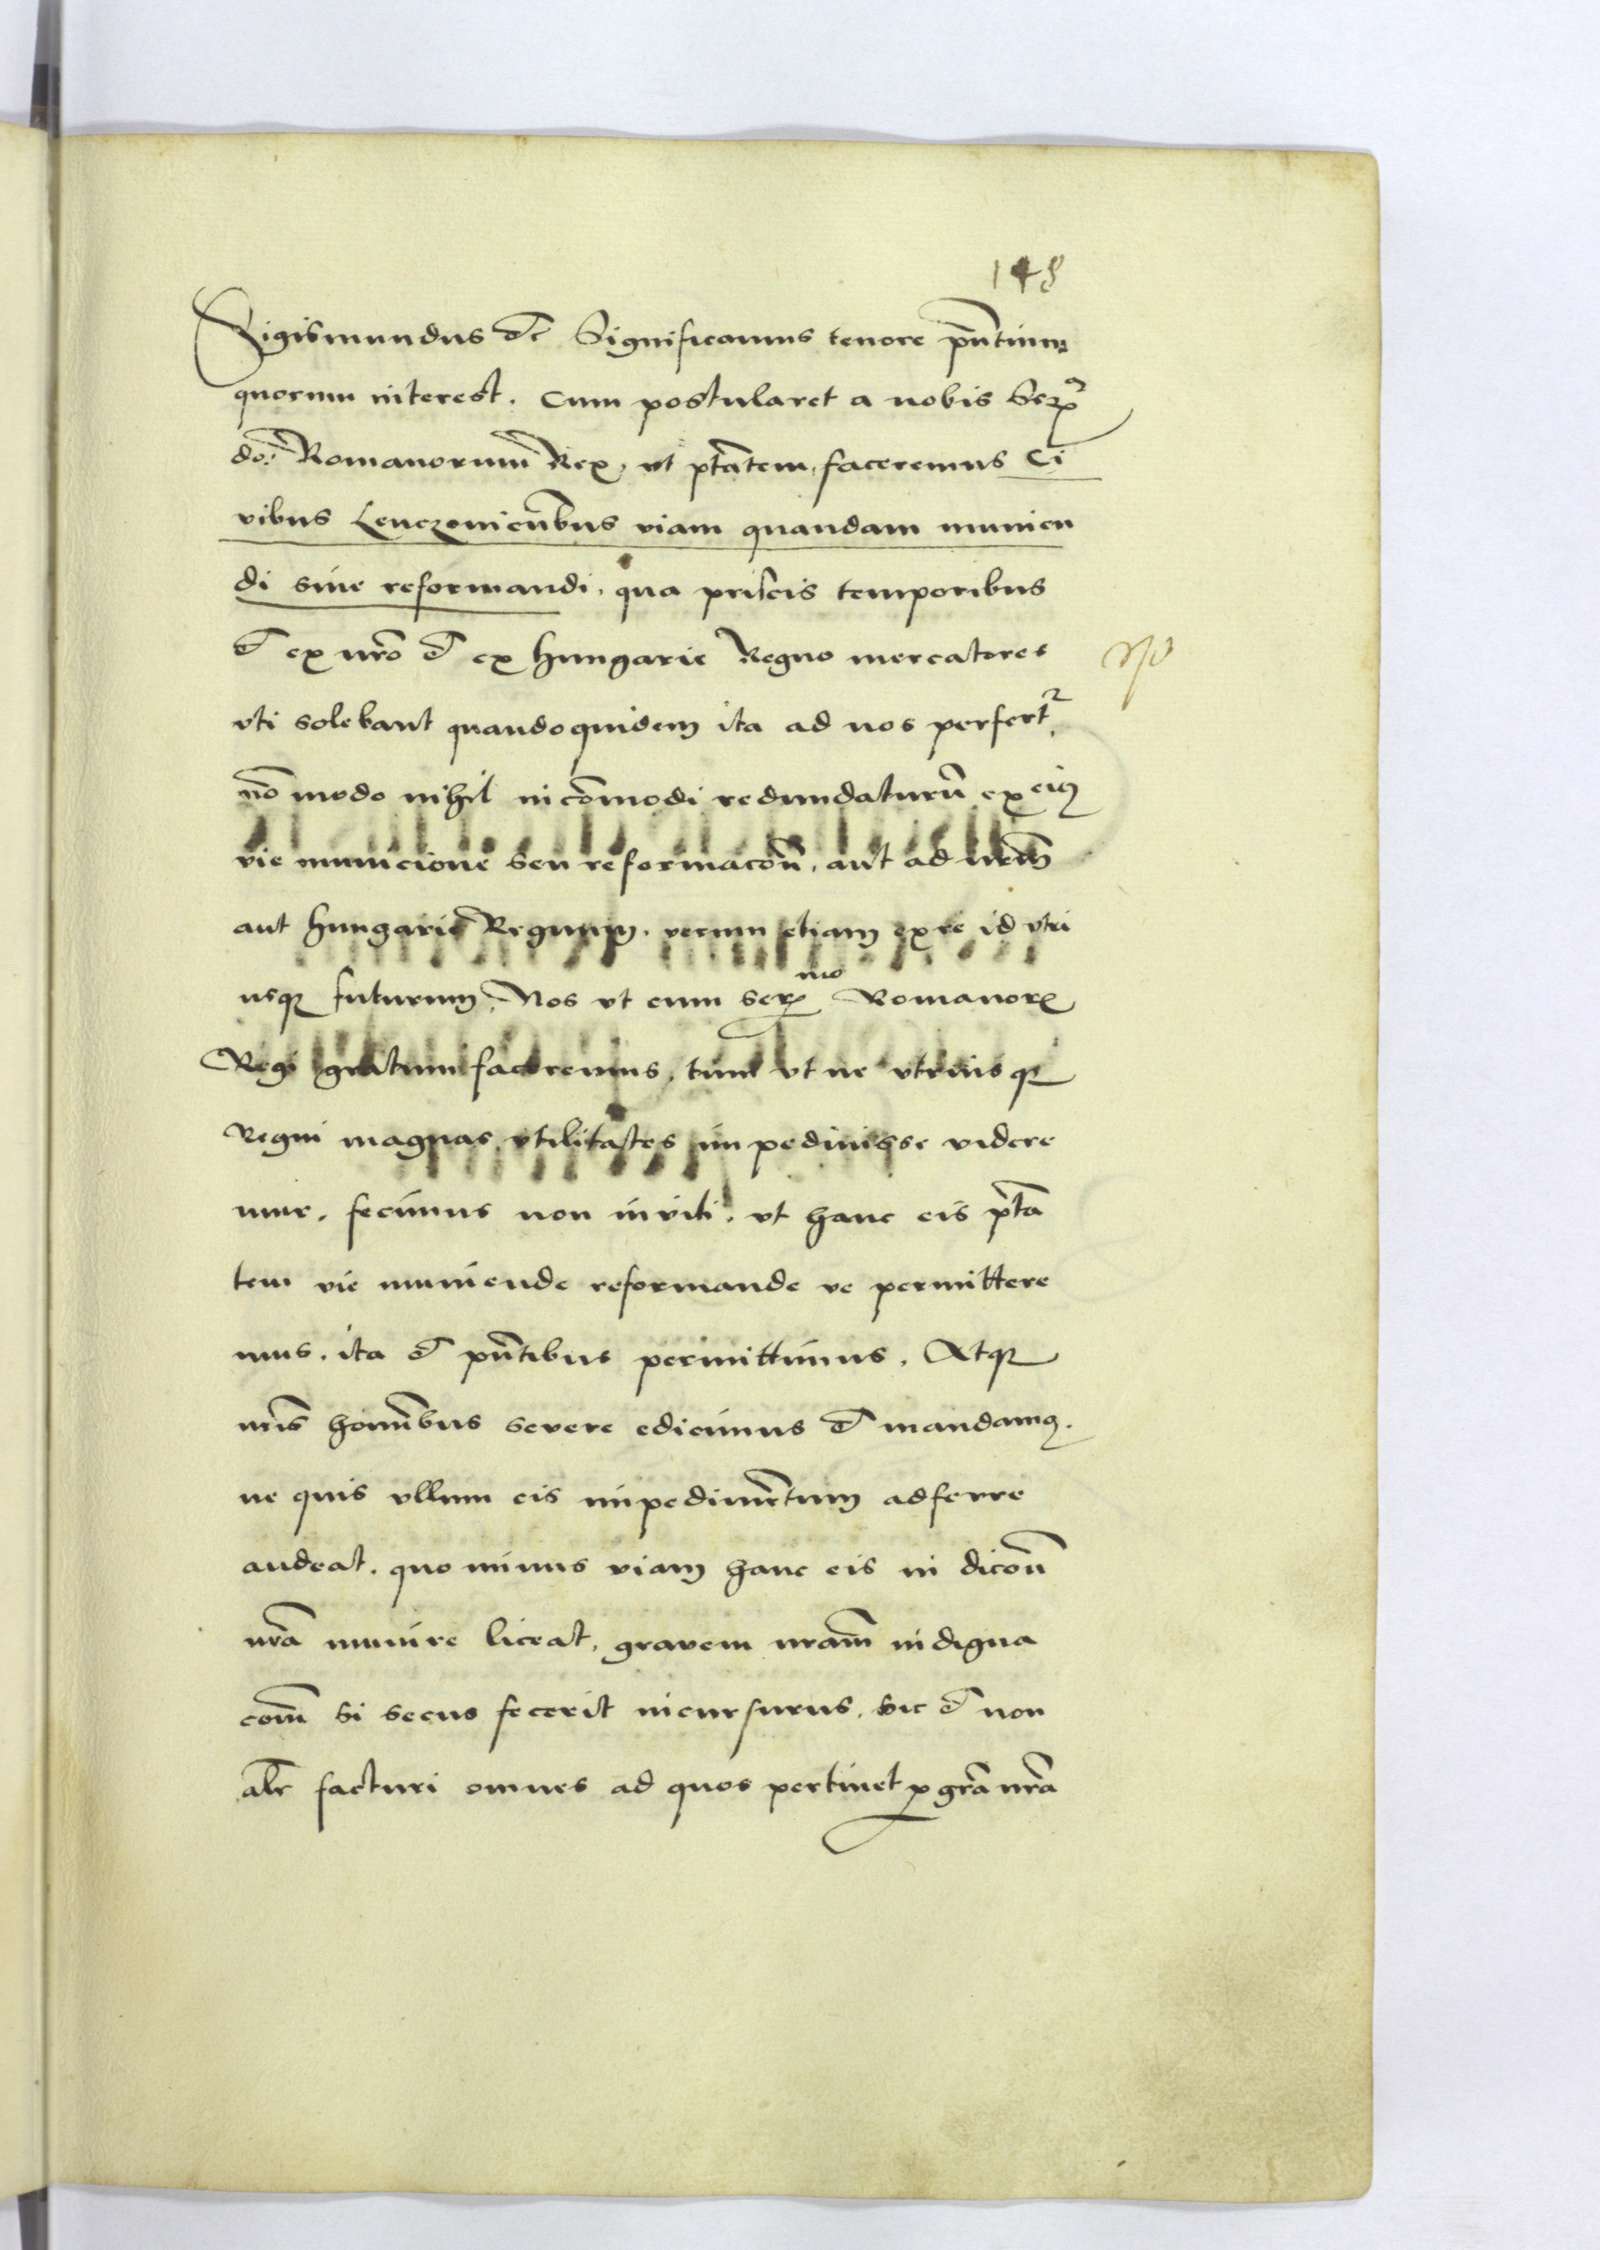 148
Sigismundus &c Significamus tenore pn̄tium
quorum interest. Cum postularet a nobis Ser.
do: Romanorum Rex, vt ptātem faceremus Ci
vibus Lenczonien̄bus viam quandam munien
di siue reformandi, qua priscis temporibus
& ex nr̄o & ex Hungarie Regno mercatores
vti solebant quandoquidem ita ad nos perfert͛,
nō modo nihil incōmodi redundaturū ex eius
vie municione seu reformacōn̄, aut ad nr̄m
aut Hungarie Regnum, verum etiam ex re id vtri
usq futurum, Nos vt cum Ser mo Romanor
Regi gratum faceremus, tum vt ne vtriusq
Regni magnas vtilitates impediuisse videre
mur, fecimus non inviti, vt hanc eis ptā
tem vie muniende reformande ve permittere
mus, ita & pn̄tibus permittimus, Atq
nr̄is hoīnibus severe edicimus & mandamus.
ne quis vllum eis impedimentum adferre
audeat, quo minus viam hanc eis in dicōn̄
nr̄a munire liceat, gravem nr̄am indigna
cōm̄ si secus fecerit incursurus, sic & non
alr̄ facturi omnes ad quos pertinet p grā nr̄a